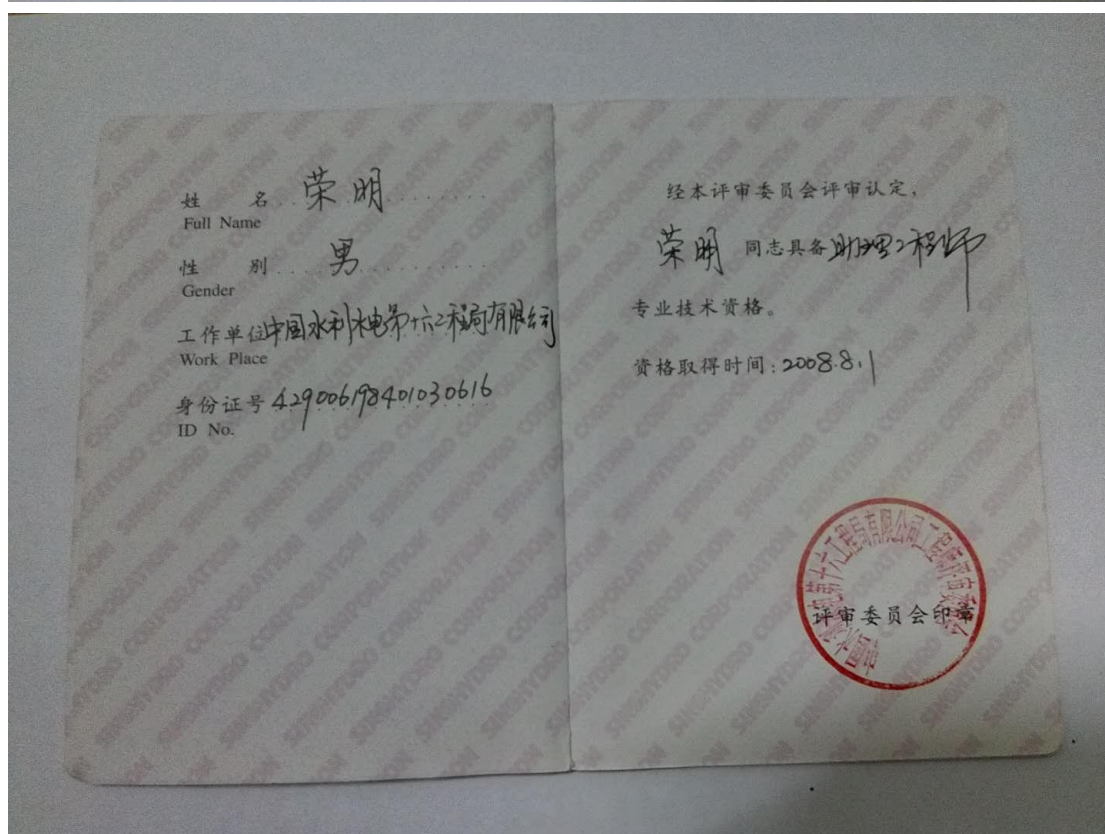 姓 名 荣明
Full Name
性 别 男
Gender
工作单位中国水利水电第十六工程局有限公司
Work Place
身份证号 429006198401030616
ID No.
经本评审委员会评审认定,
荣明 同志具备助理工程师
专业技术资格。
资格取得时间:2008.8.1
中国水利水电第十六工程局有限公司工程师评审委员会
评审委员会印章
SINOHYDRO CORPORATION